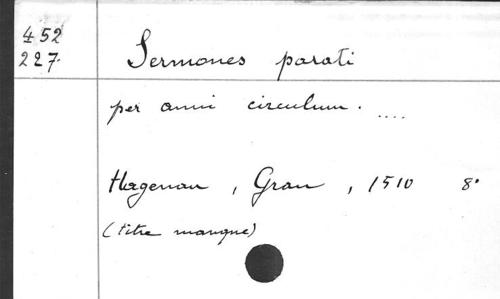 452
227.
Sermones parati
per anni circulum. ....
Hagenau, Gran, 1510 8°
(titre manque)